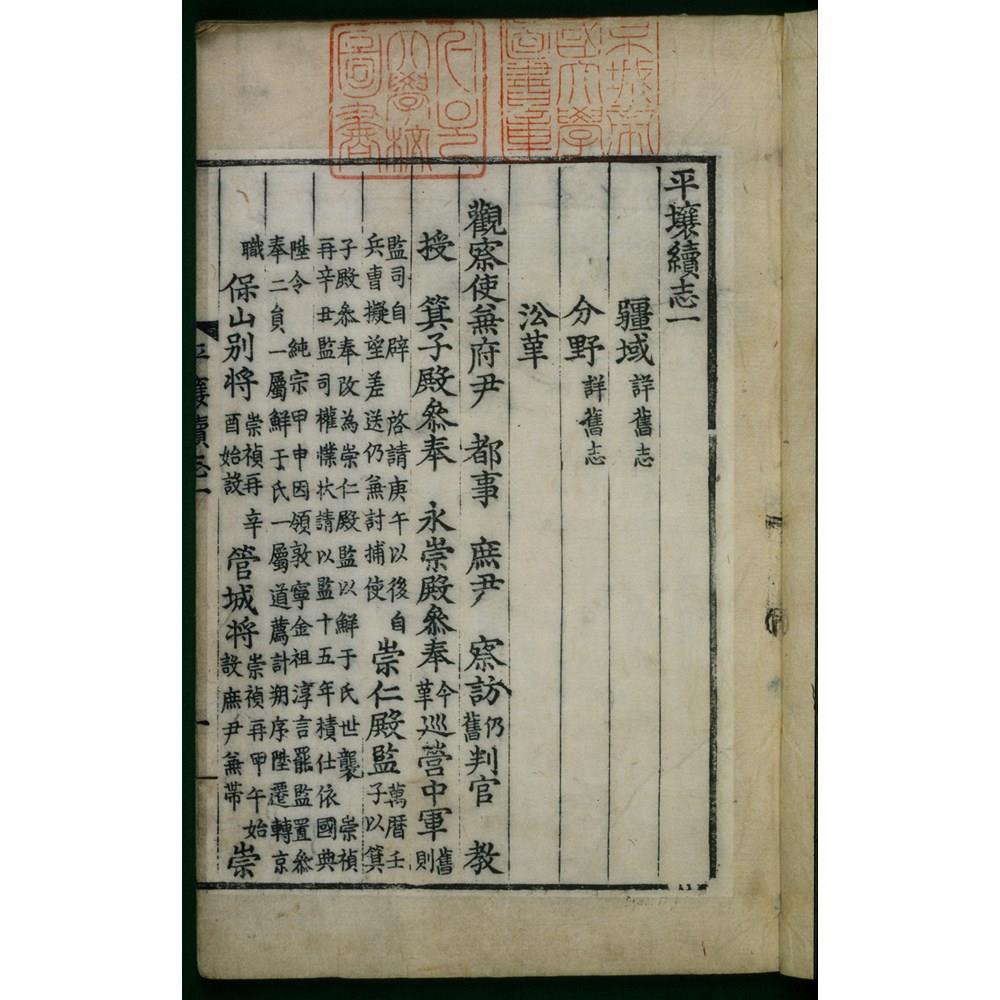 京城帝
國大學
圖書章
大學校
圖書
平壤續志一
疆域 詳舊志
分野 詳舊志
㳂革
觀察使兼府尹 都事 庶尹 察訪 仍舊 判官 教
授 箕子殿叅奉 永崇殿叅奉 今革 巡營中軍 舊則
監司自辟 啓請庚午以後自
兵曹擬望差送仍兼討捕使 崇仁殿監 萬曆壬子以箕
子殿叅奉改為崇仁殿監以鮮于氏世襲 崇禎
再辛丑監司權𢢜狀請以監十五年積仕依國典
陞令 純宗甲申因領敦寧金祖淳言罷監置叅
奉二員一屬鮮于氏一屬道薦計朔序陞遷轉京
職 保山別将 崇禎再辛酉始設 管城将 崇禎再甲午始設庶尹兼帶 崇
平壤續志一 一